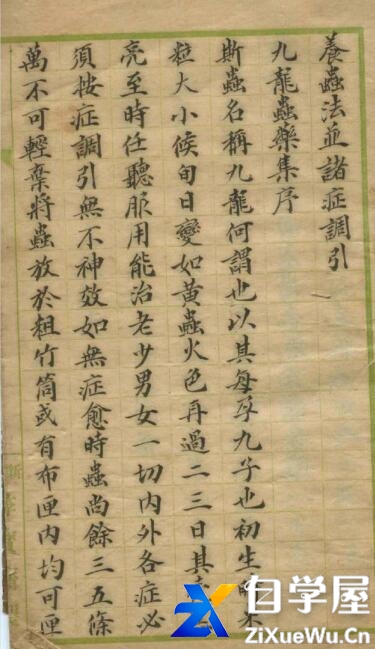 養蟲法並諸症調引
九龍蟲藥集序
斯蟲名稱九龍何謂也以其每孕九子也初生米
粒大小候旬日變如黃蟲火色再過二三日其
亮至時任聽服用能治老少男女一切內外各症必
須按症調引無不神效如無症愈時蟲尚餘三五條
萬不可輕棄將蟲放於粗竹筒或有布匣內均可匣
自学屋
ZiXueWu.Cn